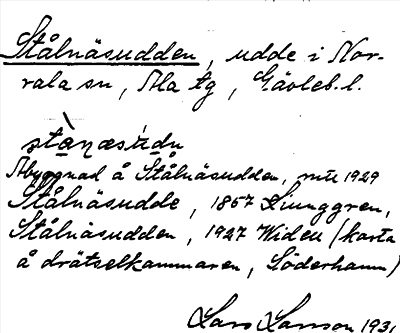 Stålnäsudden, udde i Nor-
rala sn, Ala tg, Gävleb. l.
stànæsúdn
Abyggnad å Stålnäsudden, 1929
Stålnäsudde, 1857 Ljunggren,
Stålnäsudden, 1927 Widén (karta
å drätselkammaren, Söderhamn)
Lars Larsson 193